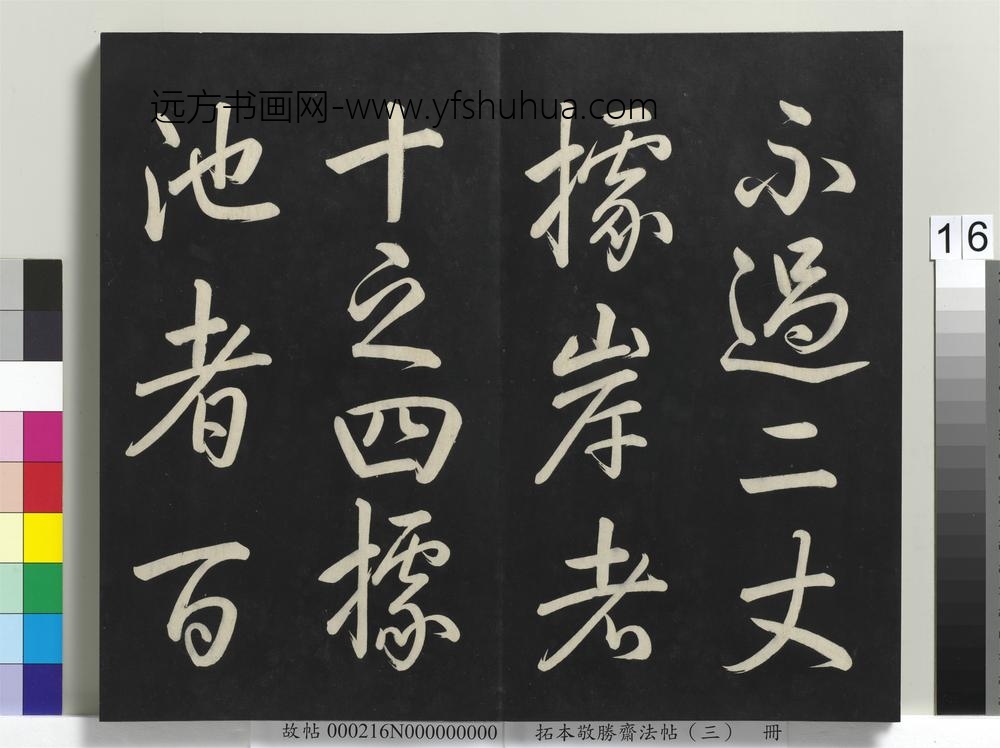 远方书画网-www.yfshuhua.com
不過二丈
據岸者
十之四據
池者百
16
故帖 000216N000000000
拓本敬勝齋法帖（三） 冊